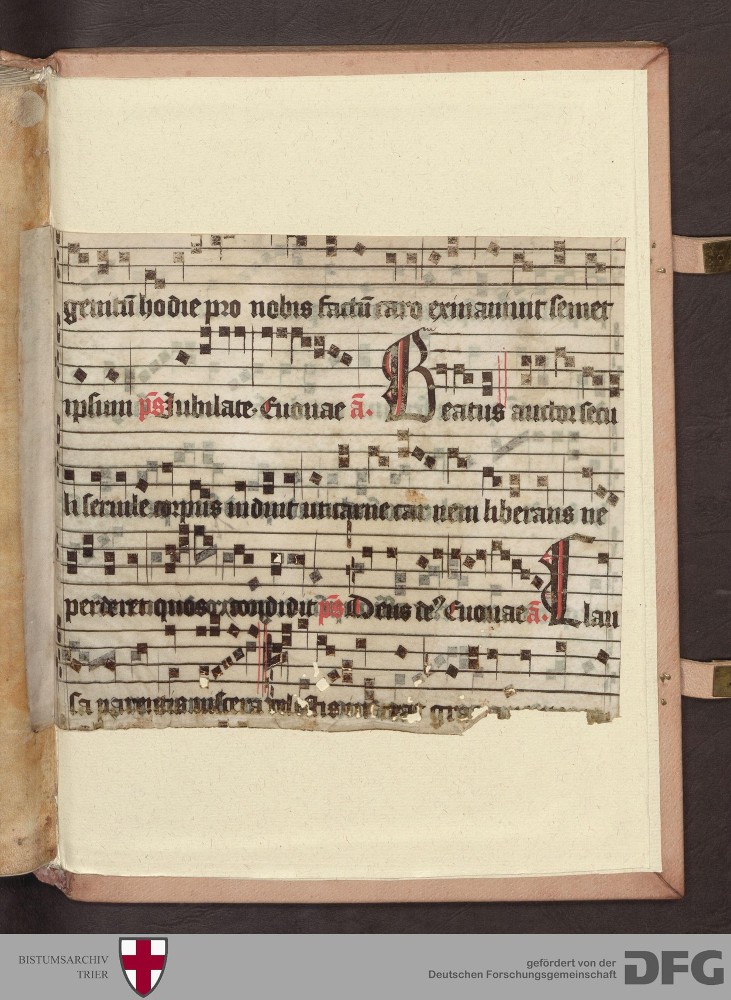 genitū hodie pro nobis factū caro exinaniuit semet
ipsum p̄s Jubilate. Euouae ā. Beatus auctor secu
li seruile corpus induit ut carne carnem liberans ne
perderet quos condidit p̄s Deus de⁹ Euouae ā. Clau
sa parentis uiscera celestis intrat gra
BISTUMSARCHIV
TRIER
gefördert von der
Deutschen Forschungsgemeinschaft
DFG